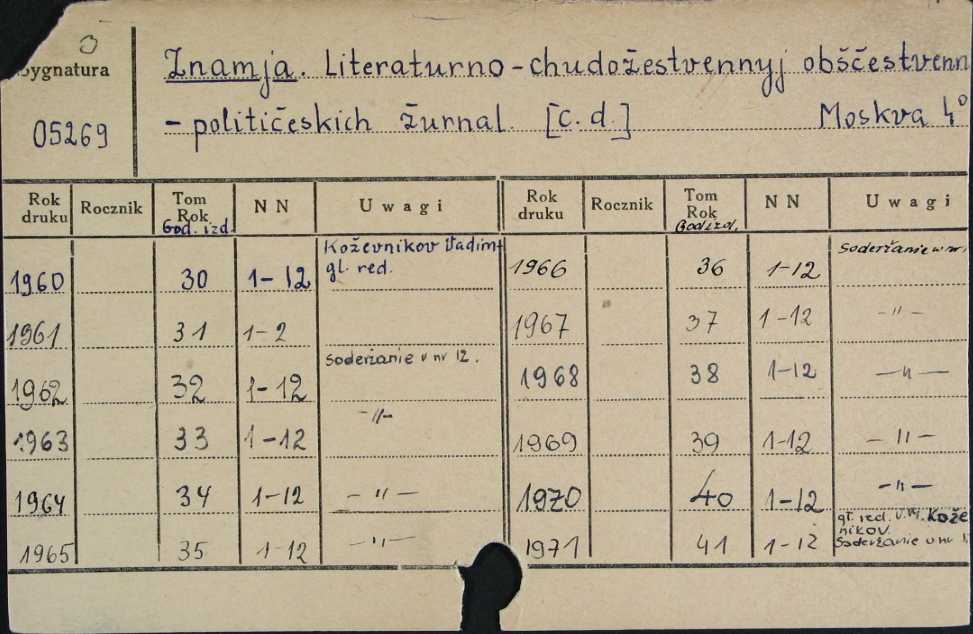 Sygnatura
05269
Znamja. Literaturno-chudožestvennyj obščestvenn
-političeskich žurnal. [c.d.] Moskva 4°
Rok druku Rocznik Tom Rok God. izd. NN Uwagi Rok druku Rocznik Tom Rok God izd. NN Uwagi
1960 30 1-12 Koževnikov Vadim gl. red. 1966 36 1-12 Soderžanie v nr
1961 31 1-2 1967 37 1-12 -"-
1962 32 1-12 Soderžanie v nr 12. 1968 38 1-12 -"-
1963 33 1-12 -"- 1969 39 1-12 -"-
1964 34 1-12 -"- 1970 40 1-12 -"-
1965 35 1-12 -"- 1971 41 1-12 gl. red. Kože
nikov.
Soderžanie v nr